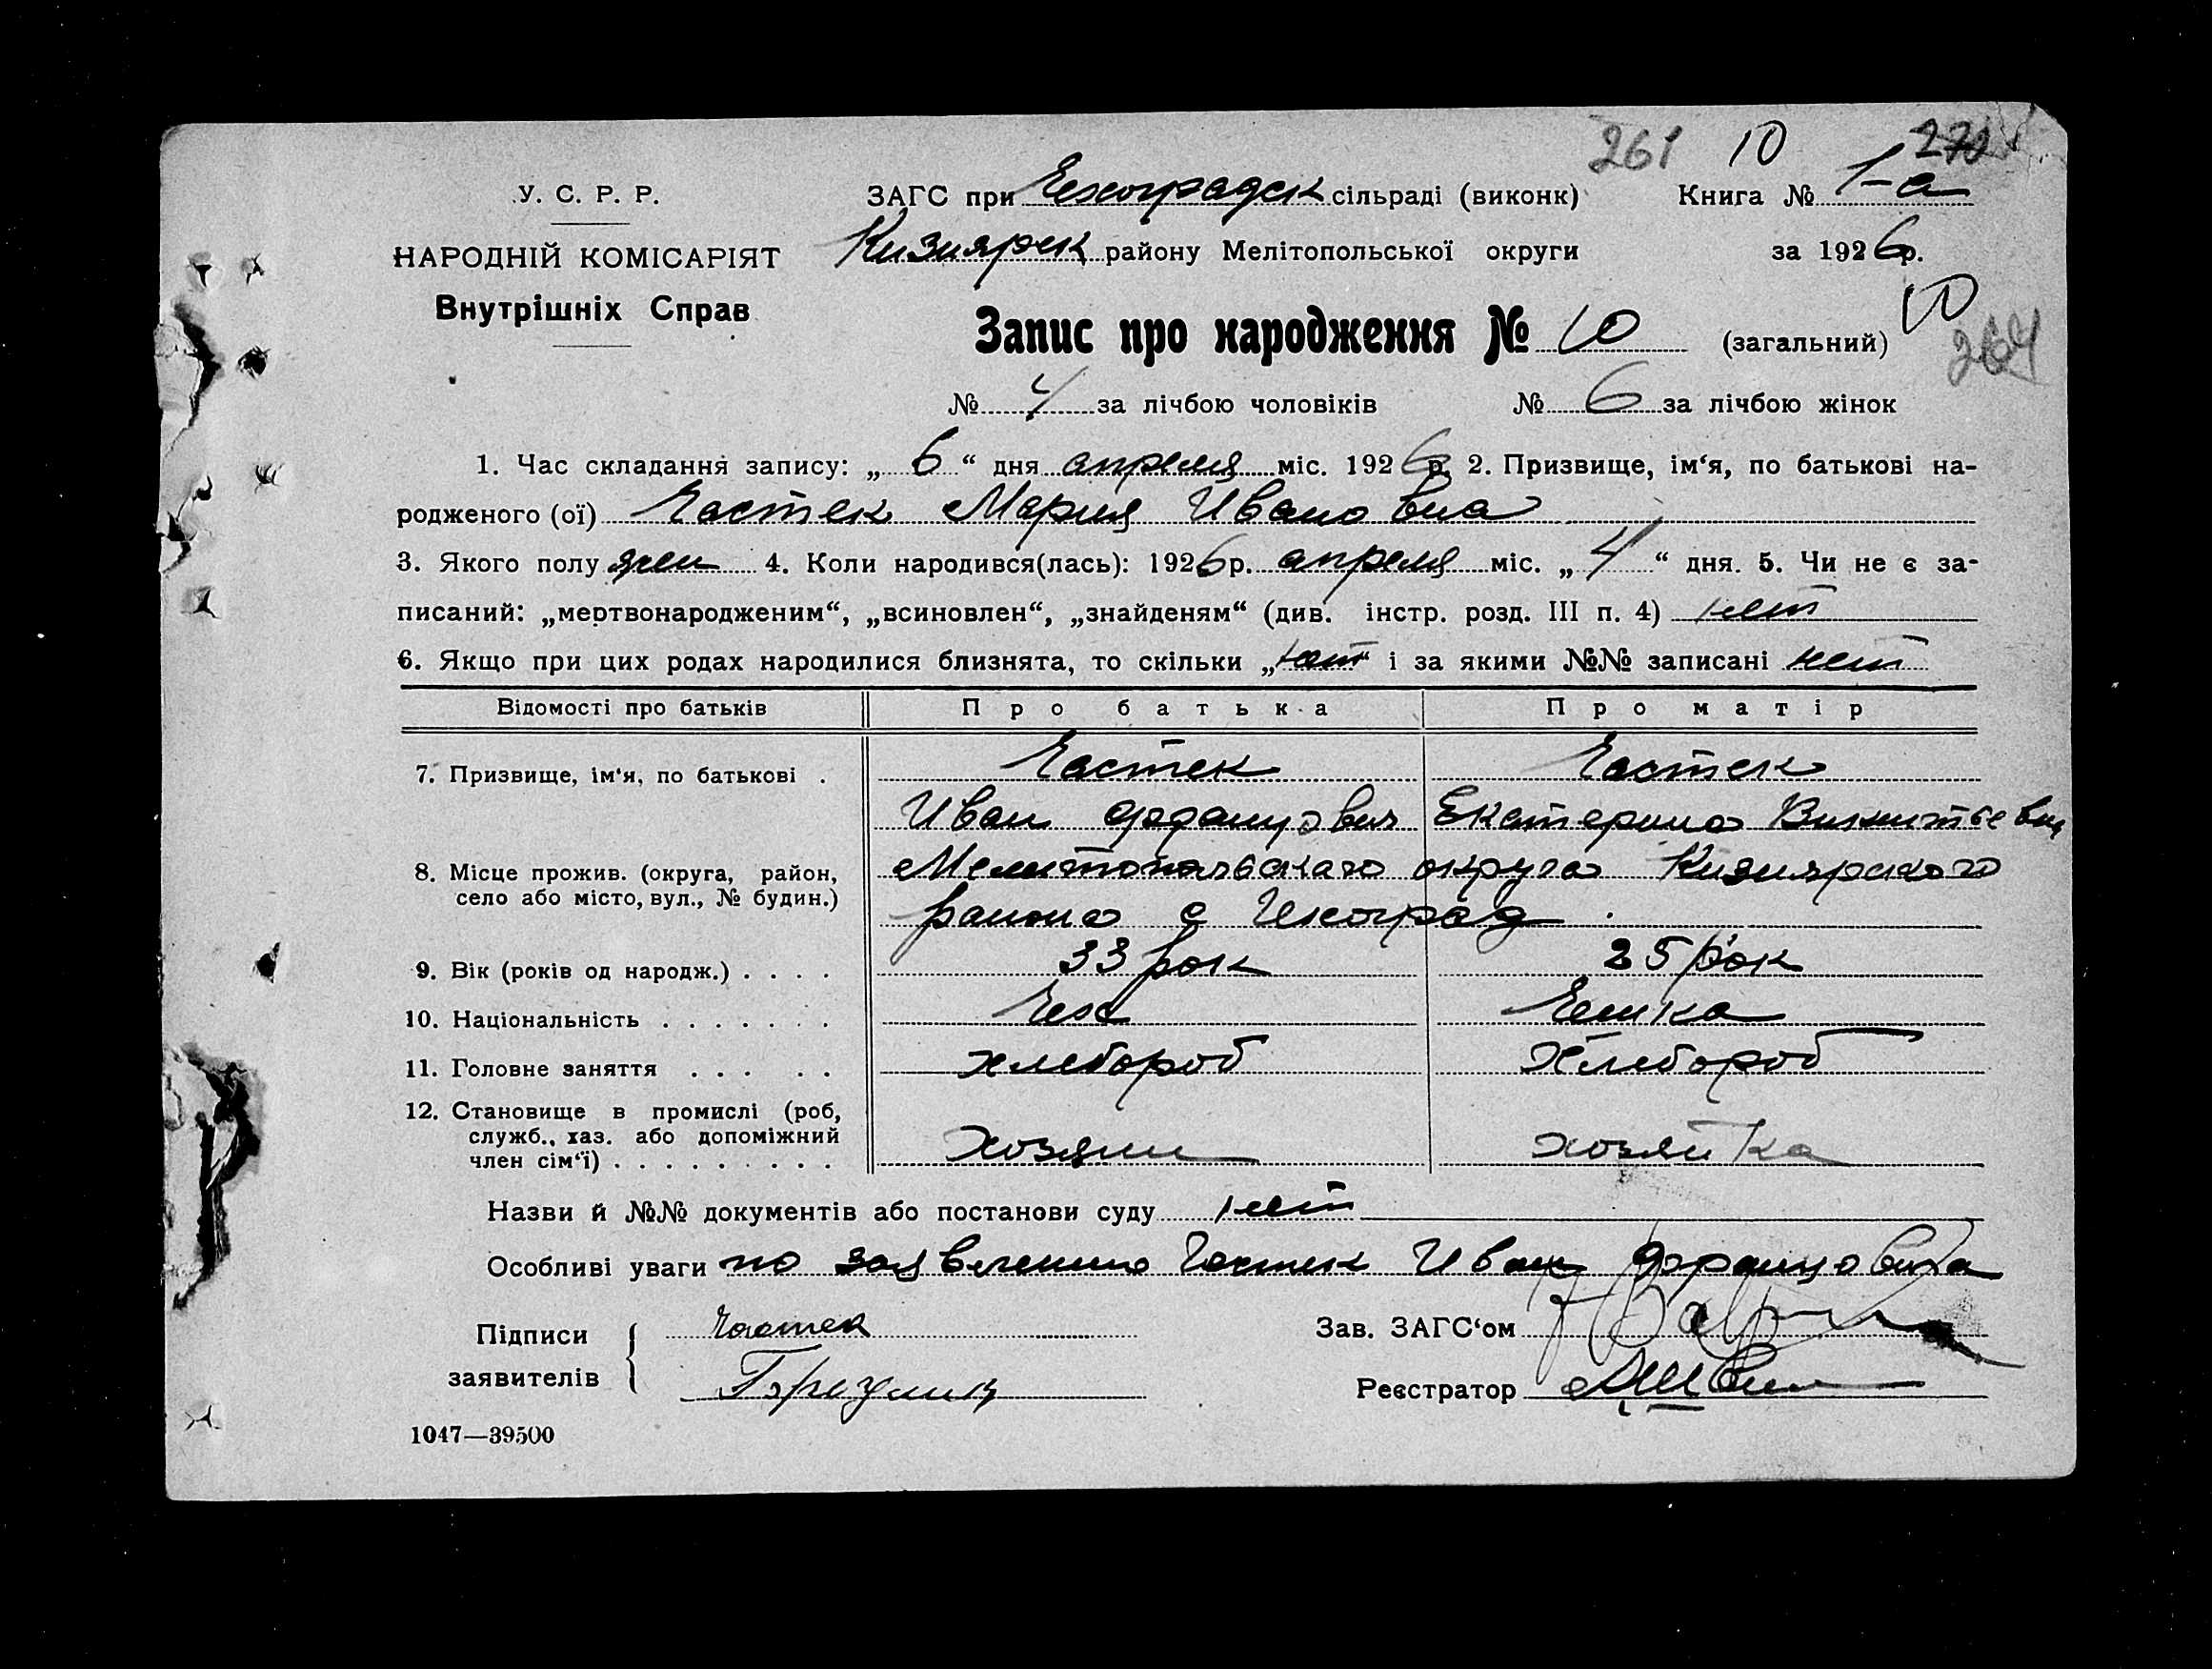 261 10 272
У. С. Р. Р. ЗАГС при Чехоградск сільраді (виконк) Книга № 1-а
НАРОДНІЙ КОМІСАРІЯТ Кизиярск району Мелітопольської округи за 1926 р.
Внутрішніх Справ
Запис про народження № 10 (загальний) 10
264
№ 4 за лічбою чоловіків № 6 за лічбою жінок
1. Час складання запису: „ 6 “ дня апреля міс. 1926 р. 2. Призвище, ім‘я, по батькові на-
родженого (ої) Частек Мария Ивановна
3. Якого полу жен 4. Коли народився(лась): 1926 р. апреля міс. „ 4 “ дня. 5. Чи не є за-
писаний: „мертвонародженим“, „всиновлен“, „знайденям“ (див. інстр. розд. III п. 4) нет
6. Якщо при цих родах народилися близнята, то скільки „нет“ і за якими №№ записані нет
Відомості про батьків Про батька Про матір
7. Призвище, ім‘я, по батькові . Частек Частек
Иван Екатерина
8. Місце прожив. (округа, район, Мелитопольскаго округа Кизиярского
село або місто, вул., № будин.) района с Чехоград
9. Вік (років од народж.) . . . . 33 рок 25 рок
10. Національність . . . . . . . Чех Чешка
11. Головне заняття . . . . . хлебороб Хлебороб
12. Становище в промислі (роб,
служб., хаз. або допоміжний
член сім‘ї) . . . . . . . . . хозяин хозяйка
Назви й №№ документів або постанови суду нет
Особливі уваги по заявлению Частек Иван Францовича
Підписи Частек Зав. ЗАГС‘ом
заявителів Реєстратор
1047—39500